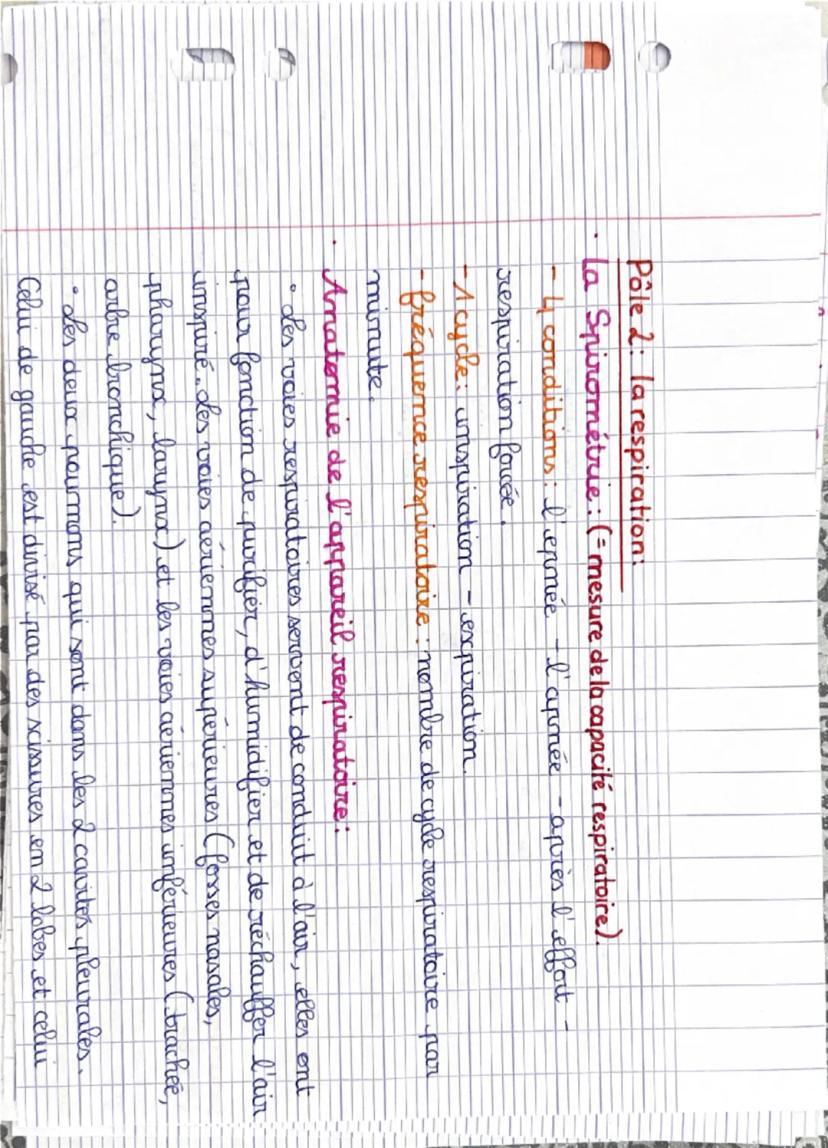 Pôle 2: la respiration:
· La Spirométrie: (= mesure de la capacité respiratoire).
- 4 conditions: l'epnée - l'apnée - après l'effort -
respiration forcée.
- 1 cycle: inspiration - expiration.
- fréquence respiratoire: nombre de cycle respiratoire par
minute.
· Anatomie de l'appareil respiratoire:
• Les voies respiratoires servent de conduit à l'air, elles ont
pour fonction de purifier, d'humidifier et de réchauffer l'air
inspiré. Les voies aériennes supérieures (fosses nasales,
pharynx, larynx) et les voies aériennes inférieures (trachée,
arbre bronchique).
• Les deux poumons qui sont dans les 2 cavités pleurales.
Celui de gauche est divisé par des scissures en 2 lobes et celui